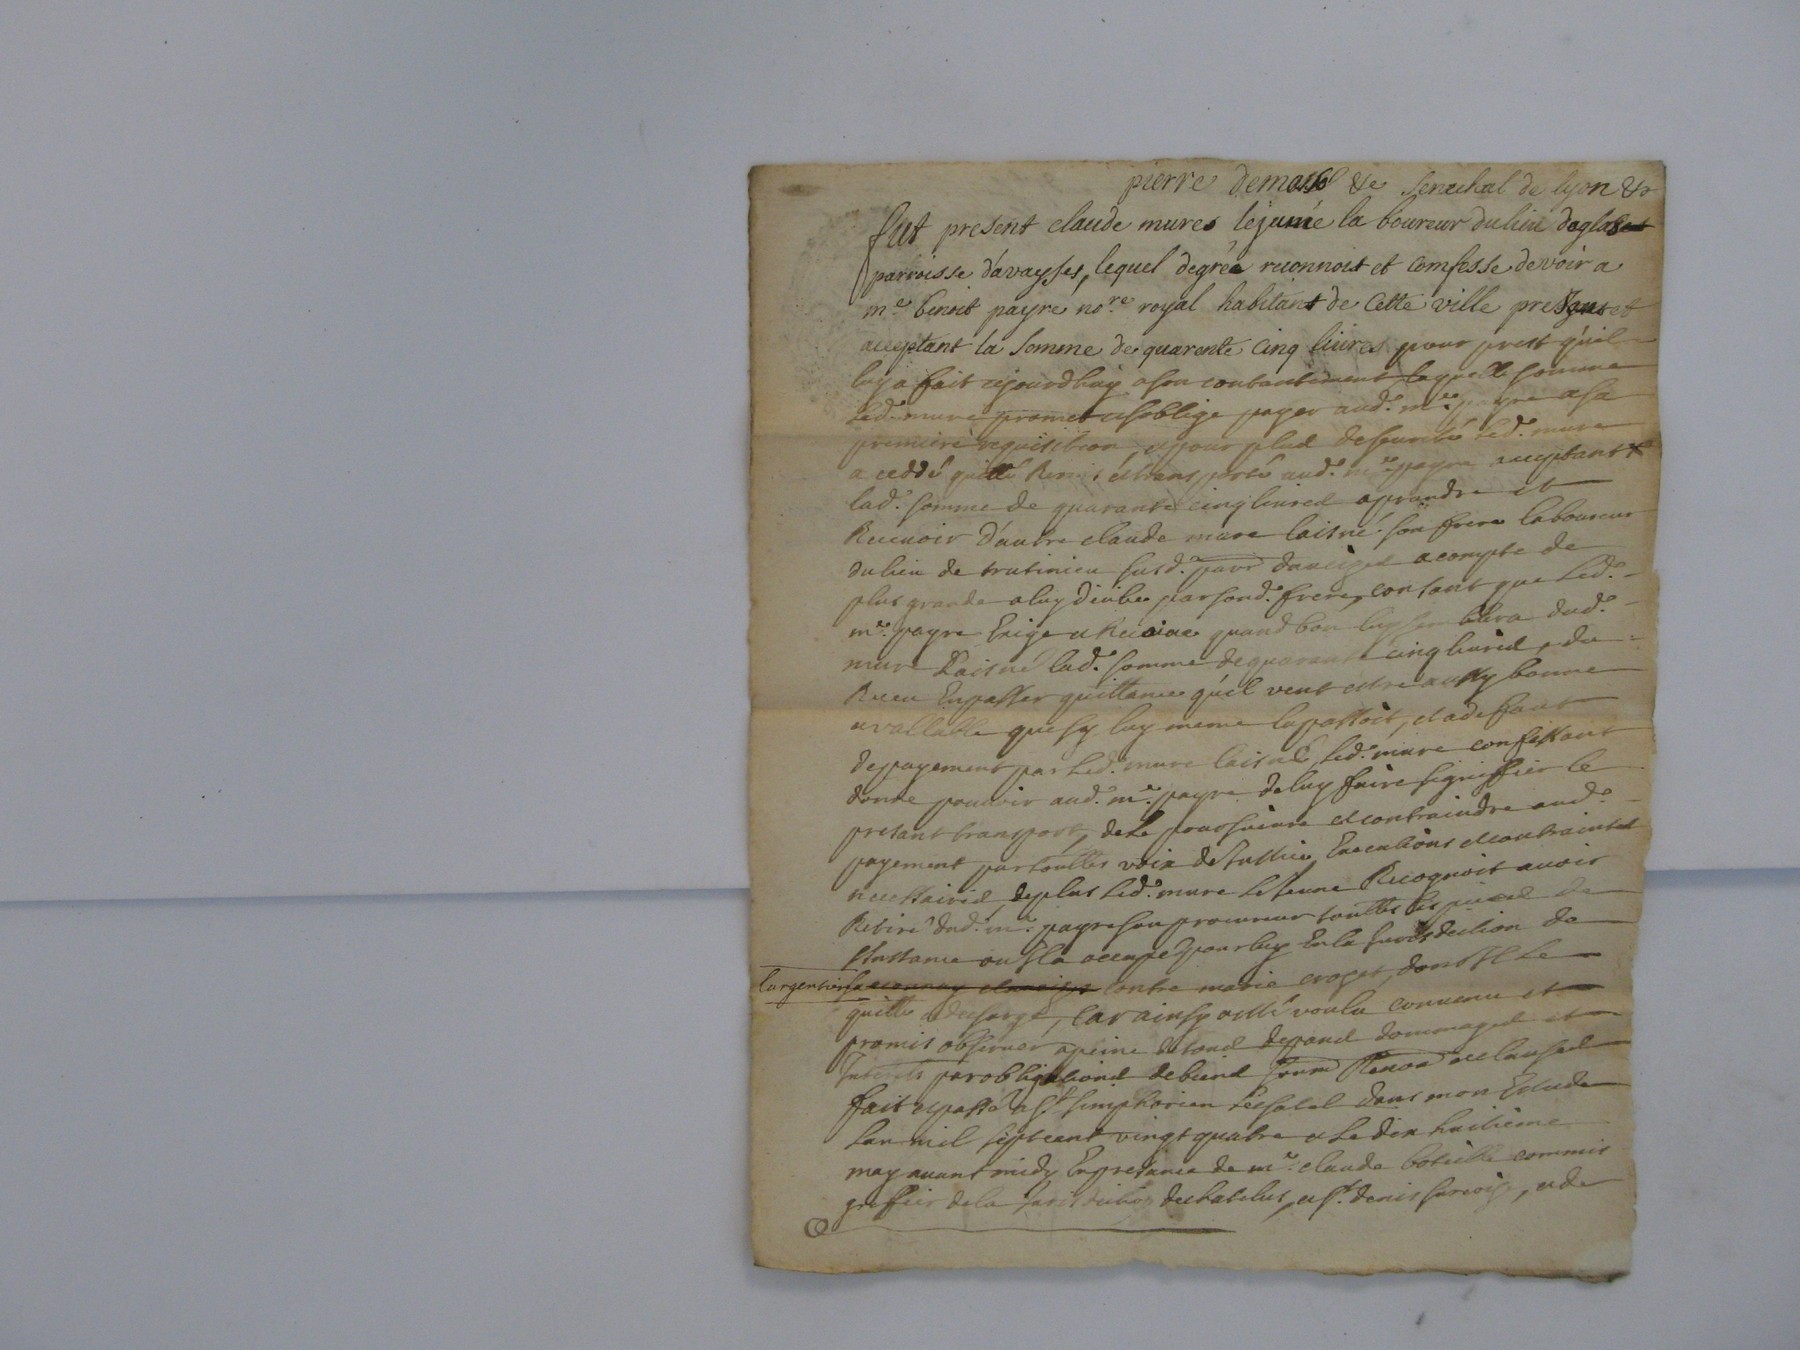 pierre demassol &c senechal de lyon &c
fut present claude mures lejeune la boureur du lieu
parroisse d'avayses, lequel degrée reconnoit et comfesse devoir a
m.e benoit payre no.re royal habitant de cette ville present et
acceptant la somme de quarente cinq livres pour prest qu'il
luy a fait cejourdhuy a son contantement laquelle somme
led. mure promet et soblige payer aud. m.e payre a sa
premiere requisition, et pour plus de seureté led. mure
a ceddé quitté Remis et transporté aud. m.e payre acceptant
lad. somme de quarante cinq livres a prandre et
Recevoir d'autre claude mure laisné son frere laboureur
du lieu de trutinieu susd. parr.e a compte de
plus grande a luy deube par sond. frere, consant que led.
m.e payre Exige et Recoive quand bon luy semblera dud.
mure L'aisné lad. somme de quarante cinq livres, du
Receu En passer quittance qu'il veut estre aussy bonne
et vallable que sy luy meme la passoit, et a defaut
de payement par led. mure laisné, led. mure confessant
donne pouvoir aud. m.e payre de luy faire signiffier le
presant transport, de le poursuivre et contraindre aud.
payement par touttes voix de Justice, Executions et contraintes
necessaires, de plus led. mure le Jeune Recognoit avoir
Retiré dud. m.e payre son procureur touttes les pieces de
L'Instance ou Il a occupé pour luy En la Jurisdiction de
largentiere contre marie crozet, dont Il le
quitte et decharge, car ainsy a esté voulu convenu et
promis observer a peine de tous depans dommages et
Interests par obligations de biens soum.s Renon.s et clauses
fait et passé a s.t simphorien le chatel dans mon Estude
lan mil sept cent vingt quatre et le dix huitieme
may avant midy En presance de m.e claude commis
greffier de la Jurisdiction de chatelus, et s.t denis, et de